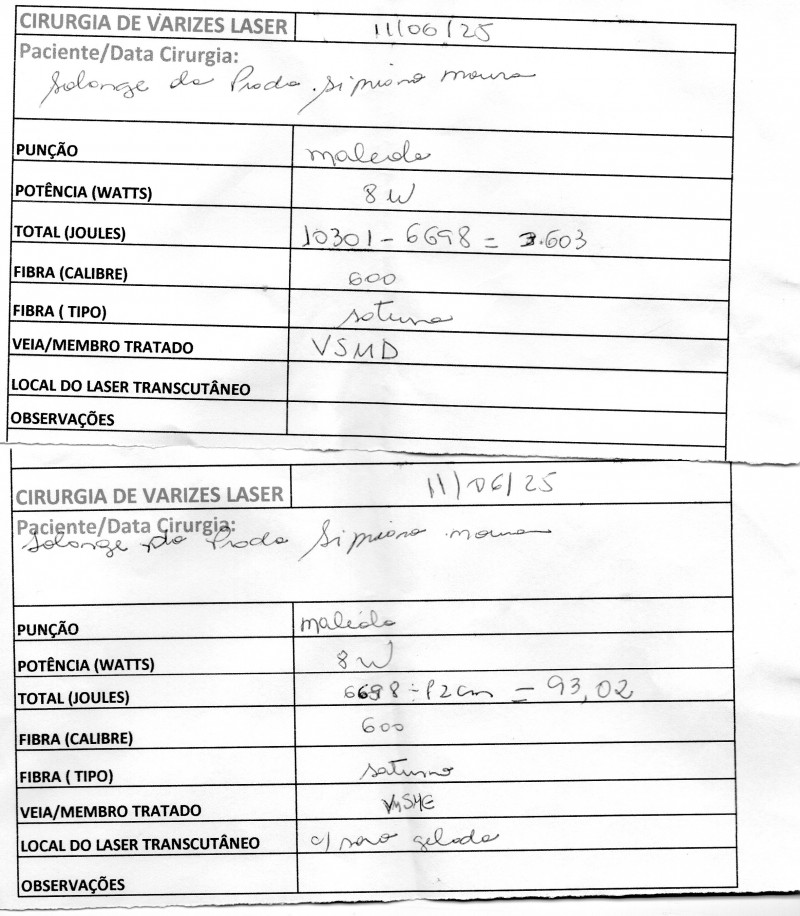 CIRURGIA DE VARIZES LASER 11/06/25
Paciente/Data Cirurgia:
Solange da Prada Sipriano Moura
PUNÇÃO maleolo
POTÊNCIA (WATTS) 8 W
TOTAL (JOULES) 10301 - 6698 = 3.603
FIBRA (CALIBRE) 600
FIBRA ( TIPO) saturno
VEIA/MEMBRO TRATADO VSMD
LOCAL DO LASER TRANSCUTÂNEO
OBSERVAÇÕES
CIRURGIA DE VARIZES LASER 11/06/25
Paciente/Data Cirurgia:
Solange da Prada Sipriano Moura
PUNÇÃO maleolo
POTÊNCIA (WATTS) 8 W
TOTAL (JOULES) 6698 ÷ 72cm = 93,02
FIBRA (CALIBRE) 600
FIBRA ( TIPO) saturno
VEIA/MEMBRO TRATADO VSME
LOCAL DO LASER TRANSCUTÂNEO c/ soro gelado
OBSERVAÇÕES